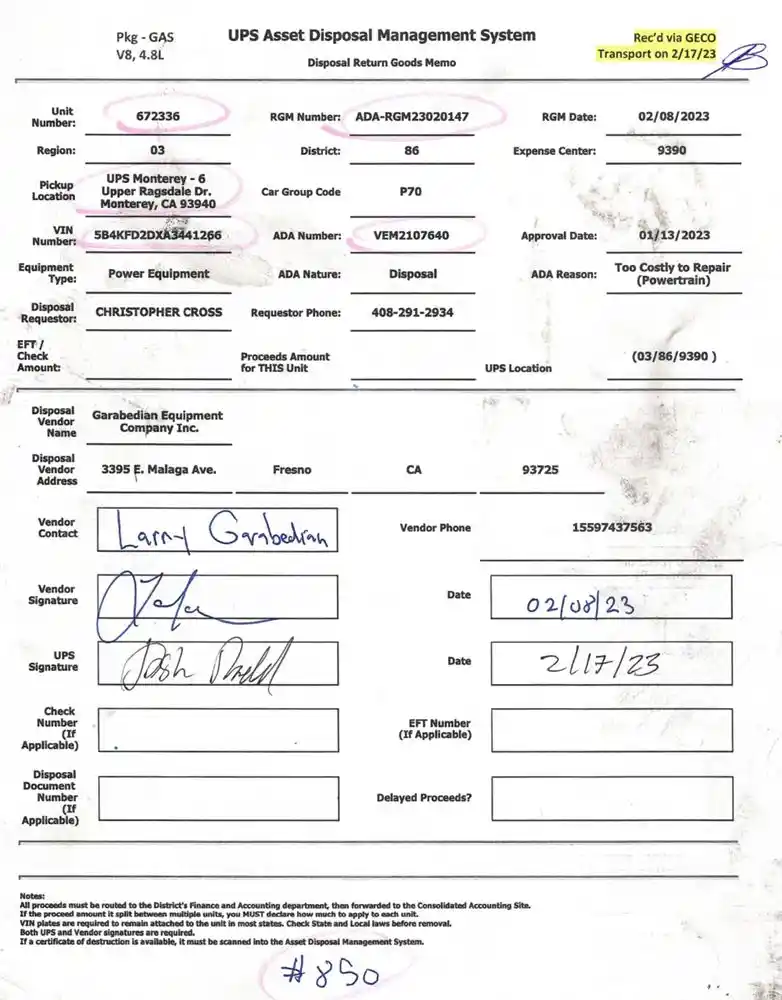 Pkg - GAS
V8, 4.8L
UPS Asset Disposal Management System
Disposal Return Goods Memo
Rec'd via GECO
Transport on 2/17/23
Unit Number: 672336 RGM Number: ADA-RGM23020147 RGM Date: 02/08/2023
Region: 03 District: 86 Expense Center: 9390
Pickup Location UPS Monterey - 6 Upper Ragsdale Dr. Monterey, CA 93940 Car Group Code P70
VIN Number: 5B4KFD2DXA3441266 ADA Number: VEM2107640 Approval Date: 01/13/2023
Equipment Type: Power Equipment ADA Nature: Disposal ADA Reason: Too Costly to Repair (Powertrain)
Disposal Requestor: CHRISTOPHER CROSS Requestor Phone: 408-291-2934
EFT / Check Amount: Proceeds Amount for THIS Unit UPS Location (03/86/9390 )
Disposal Vendor Name Garabedian Equipment Company Inc.
Disposal Vendor Address 3395 E. Malaga Ave. Fresno CA 93725
Vendor Contact Larry Garabedian Vendor Phone 15597437563
Vendor Signature Date 02/08/23
UPS Signature Date 2/17/23
Check Number (If Applicable) EFT Number (If Applicable)
Disposal Document Number (If Applicable) Delayed Proceeds?
Notes:
All proceeds must be routed to the District's Finance and Accounting department, then forwarded to the Consolidated Accounting Site.
If the proceed amount it split between multiple units, you MUST declare how much to apply to each unit.
VIN plates are required to remain attached to the unit in most states. Check State and Local laws before removal.
Both UPS and Vendor signatures are required.
If a certificate of destruction is available, it must be scanned into the Asset Disposal Management System.
#850